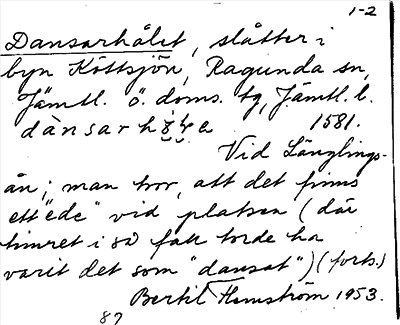 1-2
Dansarhålet, slåtter i
byn Köttsjön, Ragunda sn,
Jämtl. ö. doms. tg, Jämtl. l.
dànsar 1581.
Vid Länglings-
ån; man tror, att det finns
ett "ede" vid platsen (där
timret i så fall torde ha
varit det som "dansat") (forts.)
Bertil Flemström 1953.
87